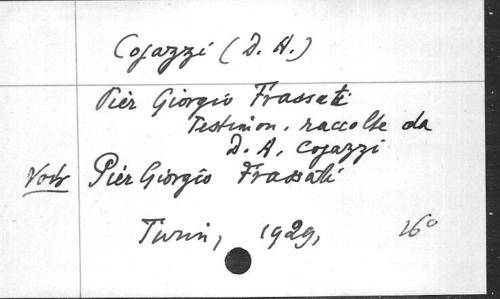 Cojazzi (D. A.)
Pier Giorgio Frassati
Testimon. raccolte da
D. A. Cojazzi
Voir Pier Giorgio Frassati
Turin, 1929, 16°